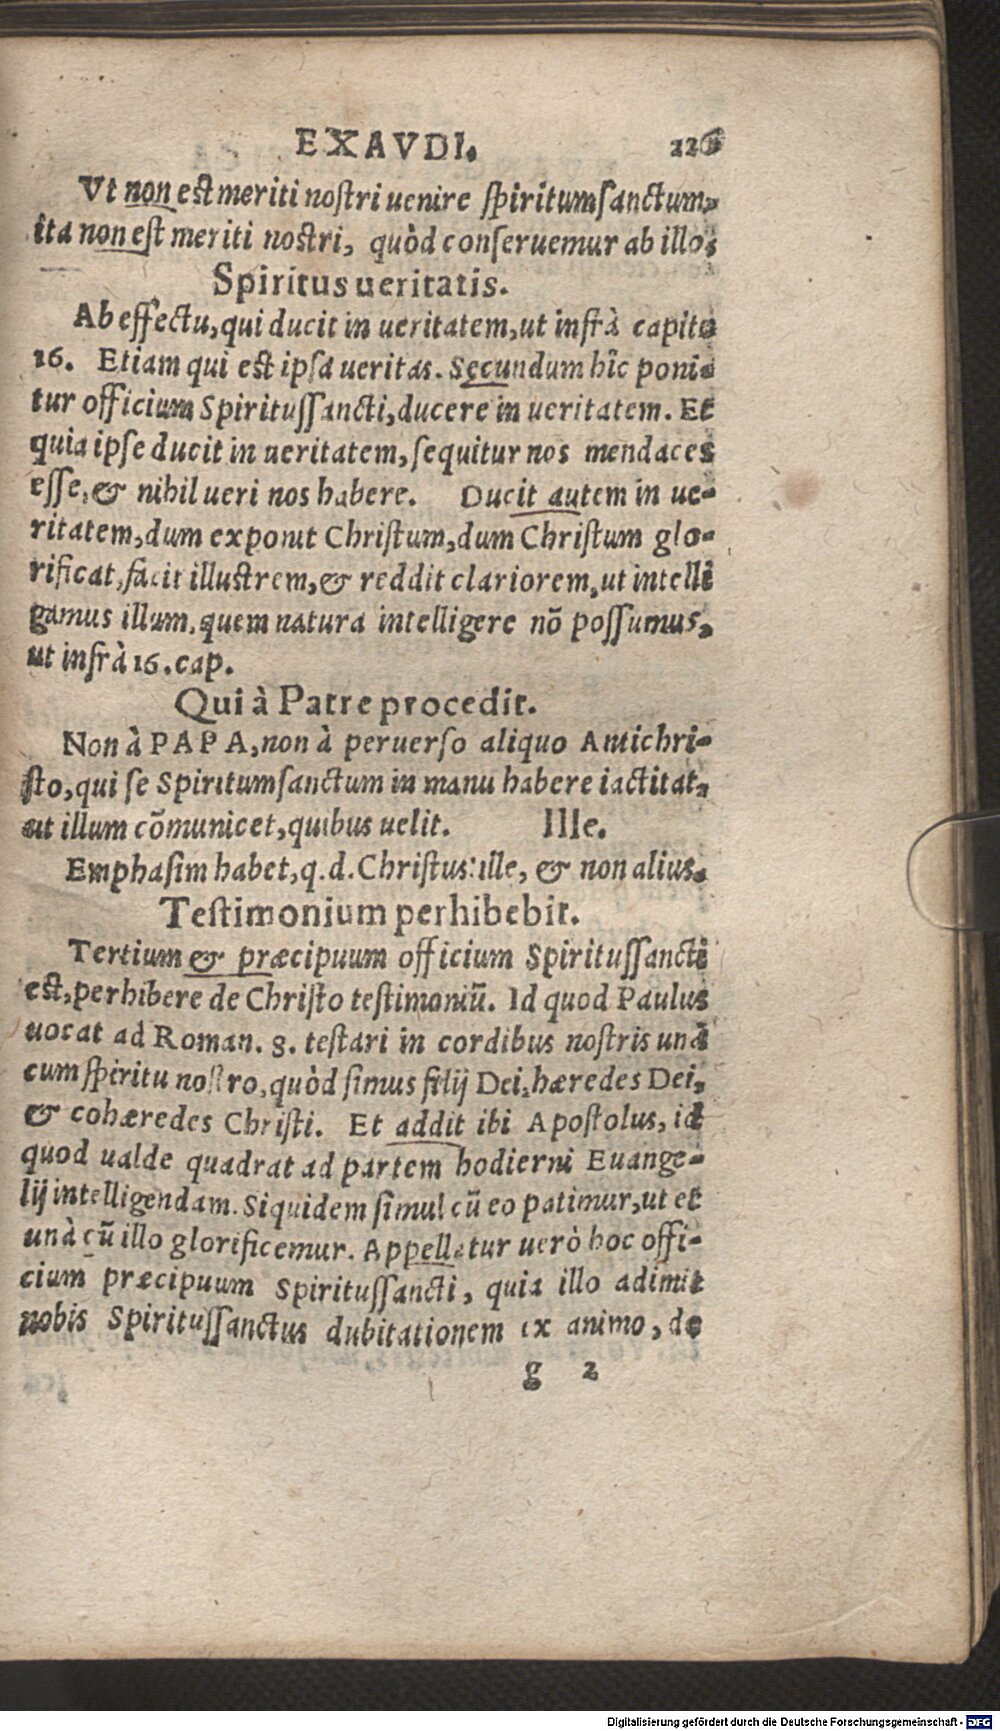 EXAVDI. 226
Vt non est meriti nostri uenire spiritumsanctum,
ita non est meriti nostri, quòd conseruemur ab illo,
Spiritus ueritatis.
Ab effectu, qui ducit in ueritatem, ut infrà capite
16. Etiam qui est ipsa ueritas. Secundum hîc poni-
tur officium Spiritussancti, ducere in ueritatem. Et
quia ipse ducit in ueritatem, sequitur nos mendaces
esse, & nihil ueri nos habere. Ducit autem in ue-
ritatem, dum exponit Christum, dum Christum glo-
rificat, facit illustrem, & reddit clariorem, ut intelli
gamus illum, quem natura intelligere nõ possumus,
ut infrà 16. cap.
Qui à Patre procedit.
Non à PAPA, non à peruerso aliquo Antichri-
sto, qui se Spiritumsanctum in manu habere iactitat,
ut illum cõmunicet, quibus uelit. Ille.
Emphasim habet, q.d. Christus: ille, & non alius.
Testimonium perhibebit.
Tertium & præcipuum officium Spiritussancti
est, perhibere de Christo testimoniũ. Id quod Paulus
uocat ad Roman. 8. testari in cordibus nostris unà
cum spiritu nostro, quòd simus filij Dei, hæredes Dei,
& cohæredes Christi. Et addit ibi Apostolus, id
quod ualde quadrat ad partem hodierni Euange-
lij intelligendam. Siquidem simul cũ eo patimur, ut et
unà cũ illo glorificemur. Appellatur uerò hoc offi-
cium præcipuum Spiritussancti, quia illo adimit
nobis Spiritussanctus dubitationem ex animo, de
g 2
Digitalisierung gefördert durch die Deutsche Forschungsgemeinschaft - DFG